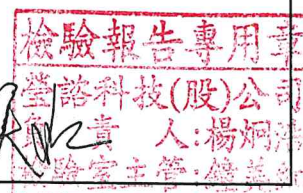 檢驗報告專用章
瑩諮科技(股)公司
負責人:楊炯
實驗室主管:鐘